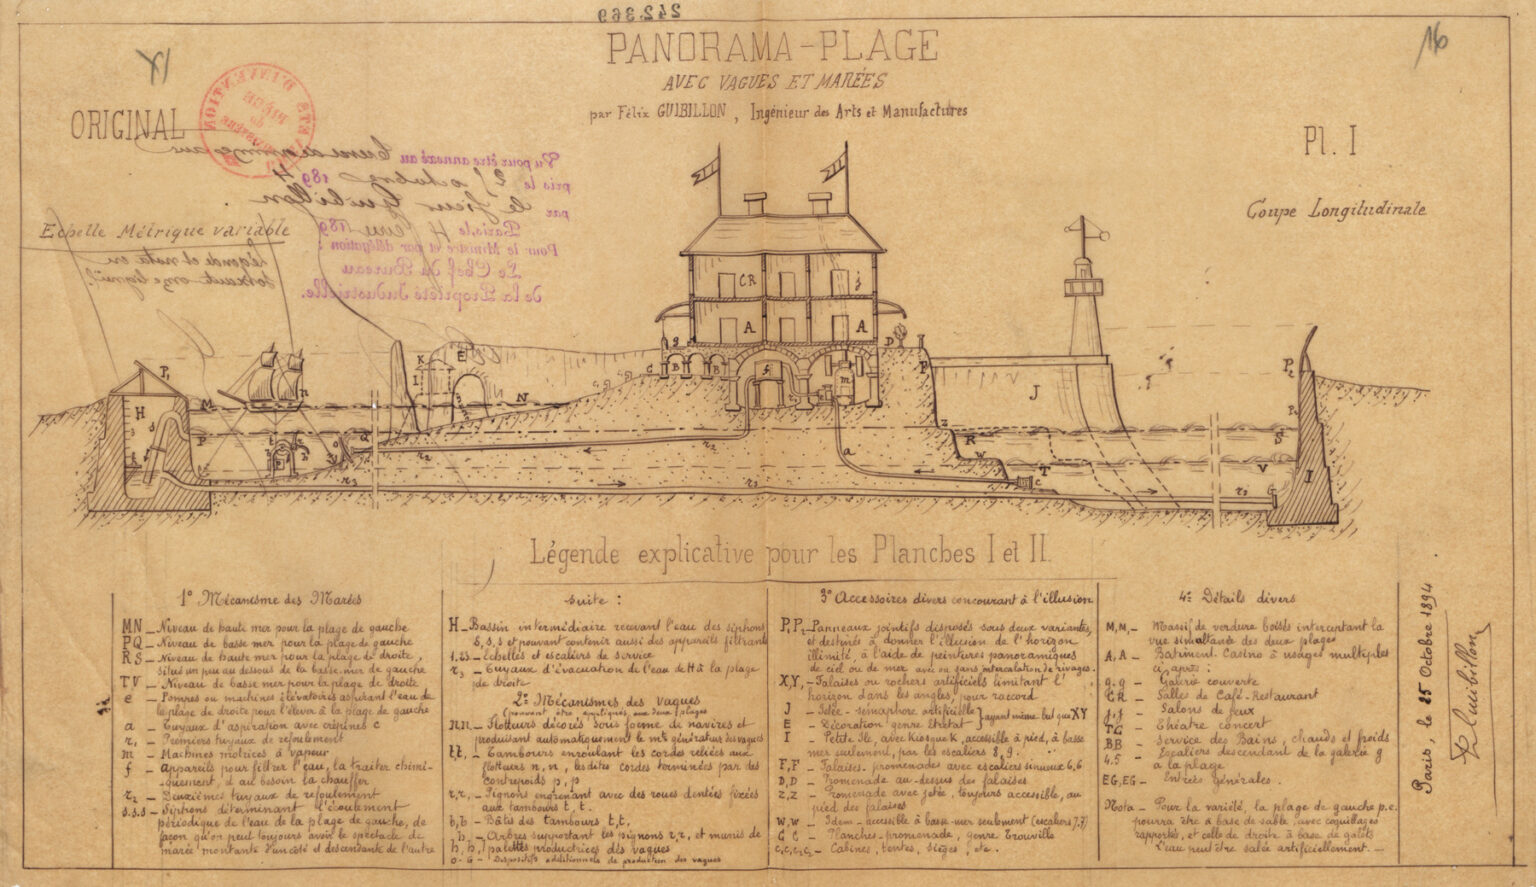 242369
PANORAMA-PLAGE
AVEC VAGUES ET MARÉES
par Félix GUIBILLON, Ingénieur des Arts et Manufactures
16
ORIGINAL
Pl. I
Coupe Longitudinale
Echelle Métrique variable
Vu pour être annexé au
pris le 25 octobre 1894
par le sieur Guibillon
Paris, le 189
Pour le Ministre et par délégation :
Le Chef du Bureau
de la Propriété Industrielle.
Légende explicative pour les Planches I et II.
1° Mécanisme des Marées
MN _ Niveau de haute mer pour la plage de gauche
PQ _ Niveau de basse mer pour la plage de gauche
RS _ Niveau de haute mer pour la plage de droite,
situé un peu au dessous de la basse mer de gauche
TV _ Niveau de basse mer pour la plage de droite
e _ Pompes ou machines élévatoires aspirant l'eau de
la plage de droite pour l'élever à la plage de gauche
a _ Tuyaux d'aspiration avec crépines c
r₁ _ Premiers tuyaux de refoulement
m _ Machines motrices à vapeur
f _ Appareils pour filtrer l'eau, la traiter chimi-
quement, et au besoin la chauffer
r₂ _ Deuxièmes tuyaux de refoulement
s.s.s _ Siphons déterminant l'écoulement
périodique de l'eau de la plage de gauche, de
façon qu'on peut toujours avoir le spectacle de
marée montante d'un côté et descendante de l'autre
suite :
H _ Bassin intermédiaire recevant l'eau des siphons
s, s, s et pouvant contenir aussi des appareils filtrants
1.2.3 _ Echelles et escaliers de service
r₃ _ Tuyaux d'évacuation de l'eau de H à la plage
de droite
2° Mécanismes des vagues
(pouvant être appliqués aux deux plages)
n.n _ Flotteurs décorés sous forme de navires et
produisant automatiquement le mt générateur des vagues
t.t. _ Tambours enroulant les cordes reliées aux
flotteurs n, n, lesdites cordes terminées par des
contrepoids p, p
r,r, _ Pignons engrenant avec des roues dentées fixées
aux tambours t, t.
b,b _ Bâtis des tambours t,t,
h, h, _ Arbres supportant les pignons r, r, et munis de
h, h, palettes productrices des vagues
o - G - Dispositifs additionnels de production des vagues
3° Accessoires divers concourant à l'illusion
P, P, _ Panneaux jointifs disposés sous deux variantes,
et destinés à donner l'illusion de l'horizon
illimité, à l'aide de peintures panoramiques
de ciel ou de mer avec ou sans intercalation de rivages.
X,Y, _ Falaises ou rochers artificiels limitant l'
horizon dans les angles, pour raccord
J _ Jetée-sémaphore artificielle } ayant même but que XY
E _ Décoration genre Étretat
I _ Petite Ile, avec Kiosque K, accessible à pied, à basse
mer seulement, par les escaliers 8, 9.
F, F _ Falaises-promenades avec escaliers sinueux 6,6
D, D _ Promenade au-dessus des falaises
z, z _ Promenade avec jetée, toujours accessible, au
pied des falaises
w, w _ Idem _ accessible à basse-mer seulement (escaliers 7,7)
G G _ Planches-promenade, genre Trouville
c,c,c₂c₂ _ Cabines, tentes, sièges, etc.
4° Détails divers
M, M, _ Massif de verdure boisés interceptant la
vue simultanée des deux plages
A, A _ Bâtiment Casino à usages multiples
ci-après :
g. g _ Galerie couverte
CR _ Salles de Café-Restaurant
j, j _ Salons de jeux
TC _ Théâtre concert
BB _ Service des Bains, chauds et froids
4.5 _ Escaliers descendant de la galerie g
à la plage
EG, EG _ Entrées générales.
Nota _ Pour la variété, la plage de gauche p.e.
pourra être à base de sable, avec coquillages
rapportés, et celle de droite à base de galets
L'eau peut être salée artificiellement. _
Paris, le 25 Octobre 1894
F. Guibillon